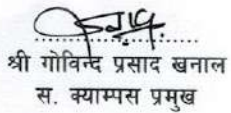 श्री गोविन्द प्रसाद खनाल
स. क्याम्पस प्रमुख